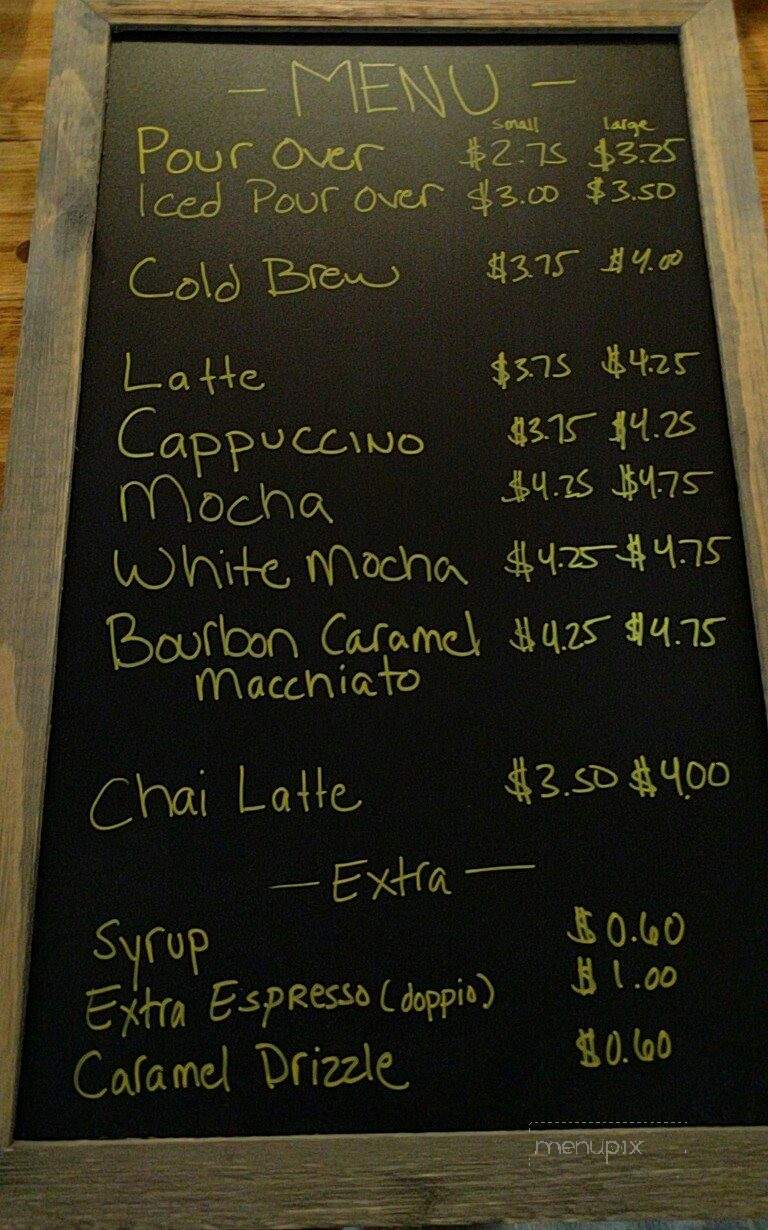 - MENU -
small large
Pour Over $2.75 $3.25
Iced Pour over $3.00 $3.50
Cold Brew $3.75 $4.00
Latte $3.75 $4.25
Cappuccino $3.75 $4.25
Mocha $4.25 $4.75
White Mocha $4.25 $4.75
Bourbon Caramel $4.25 $4.75
Macchiato
Chai Latte $3.50 $4.00
- Extra -
Syrup $0.60
Extra Espresso (doppio) $1.00
Caramel Drizzle $0.60
menupix